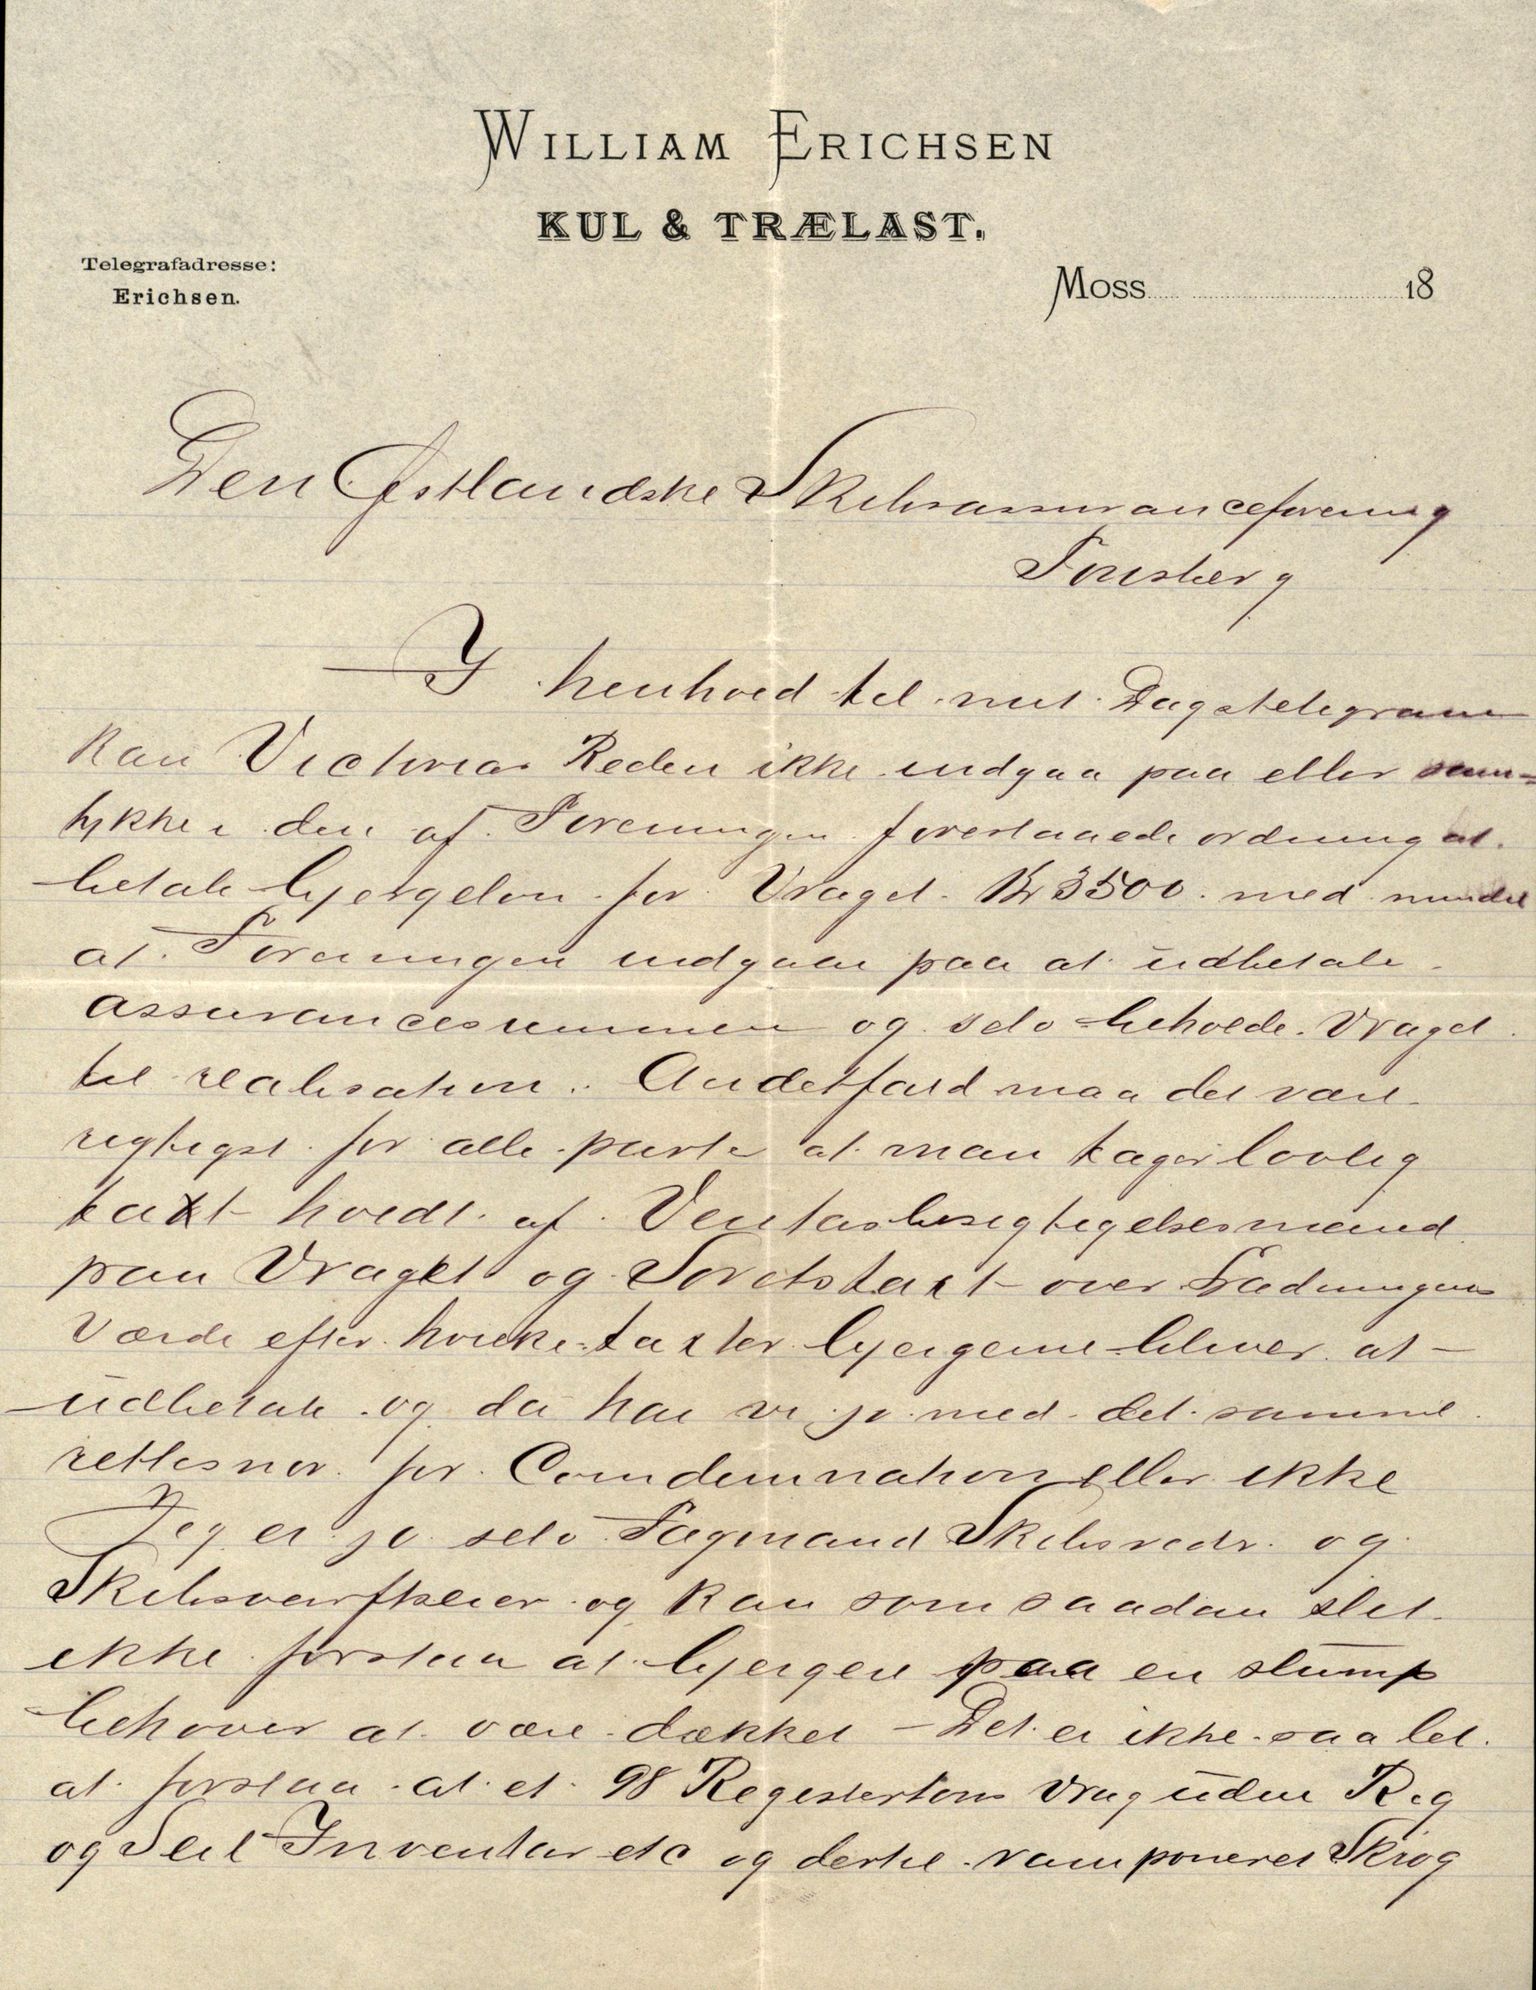 WILLIAM ERICHSEN
KUL & TRÆLAST.
Telegrafadresse:
Erichsen.
Moss 18
Den Østlandske Skibsassuranceforening
Tønsberg
I henhold til mit Dagstelegram
kan Victorias Rederi ikke indgaa paa eller sam-
tykke i den af Foreningen foreslaaede ordning at
betale bjergeløn for Vraget Kr 3500 med mindre
at Foreningen indgaar paa at udbetale
assurancesummen og selv beholde Vraget
til realisation. Andetfald maa det være
rigtigst for alle parter at man tager lovlig
taxt holdt af Veritasbesigtigelsesmænd
paa Vraget og Soretstaxt over Ladningens
Værdi efter hvilke taxter bjergerne bliver at
udbetale og da har vi jo med det samme
rettesnor for Comdemnation eller ikke
Jeg er jo selv Fagmand Skibsreder og
Skibsværftseier og kan som saadan slet
ikke forstaa at bjergere paa en slump
behøver at være dækket – Det er ikke saa let
at forstaa at et 98 Registertons Vrag uden Rig
og Seil Inventar etc og dertil ramponeret Skrog